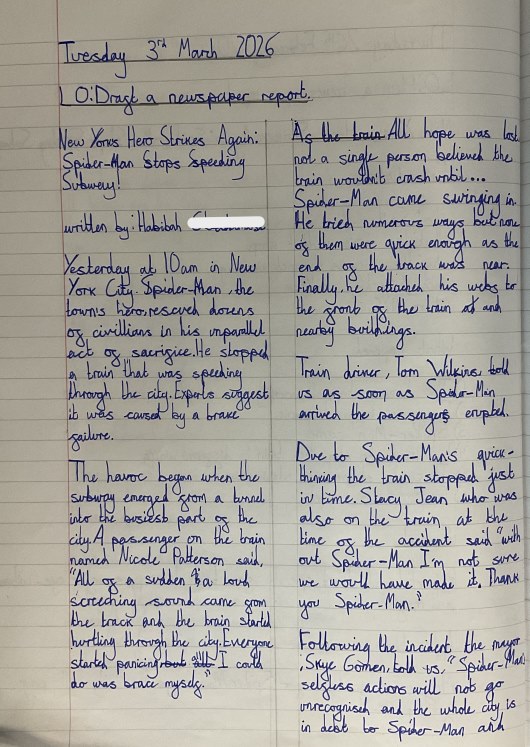 Tuesday 3rd March 2026
LO: Draft a newspaper report.
New Yorks Hero Strikes Again:
Spider-Man Stops Speeding
Subway!
written by: Habibah
Yesterday at 10am in New
York City. Spider-Man, the
town's hero, rescued dozens
of civillians in his unparallel
act of sacrifice. He stopped
a train that was speeding
through the city. Experts suggest
it was caused by a brake
failure.
The havoc began when the
subway emerged from a tunnel
into the busiest part of the
city. A passenger on the train
named Nicole Patterson said,
"All of a sudden a loud
screeching sound came from
the track and the train started
hurtling through the city. Everyone
started panicing but all I could
do was brace myself."
As the train All hope was lost
not a single person believed the
train wouldn't crash until...
Spider-Man came swinging in.
He tried numerous ways but none
of them were quick enough as the
end of the track was near.
Finally, he attached his webs to
the front of the train at and
nearby buildings.
Train driver, Tom Wilkins, told
us as soon as Spider-Man
arrived the passengers erupted.
Due to Spider-Man's quick-
thinking the train stopped just
in time. Stacy Jean who was
also on the train at the
time of the accident said "with
out Spider-Man I'm not sure
we would have made it. Thank
you Spider-Man."
Following the incident the mayor
, Skye Gomen, told us, "Spider-Man's
selfless actions will not go
unrecognised and the whole city is
in debt to Spider-Man and